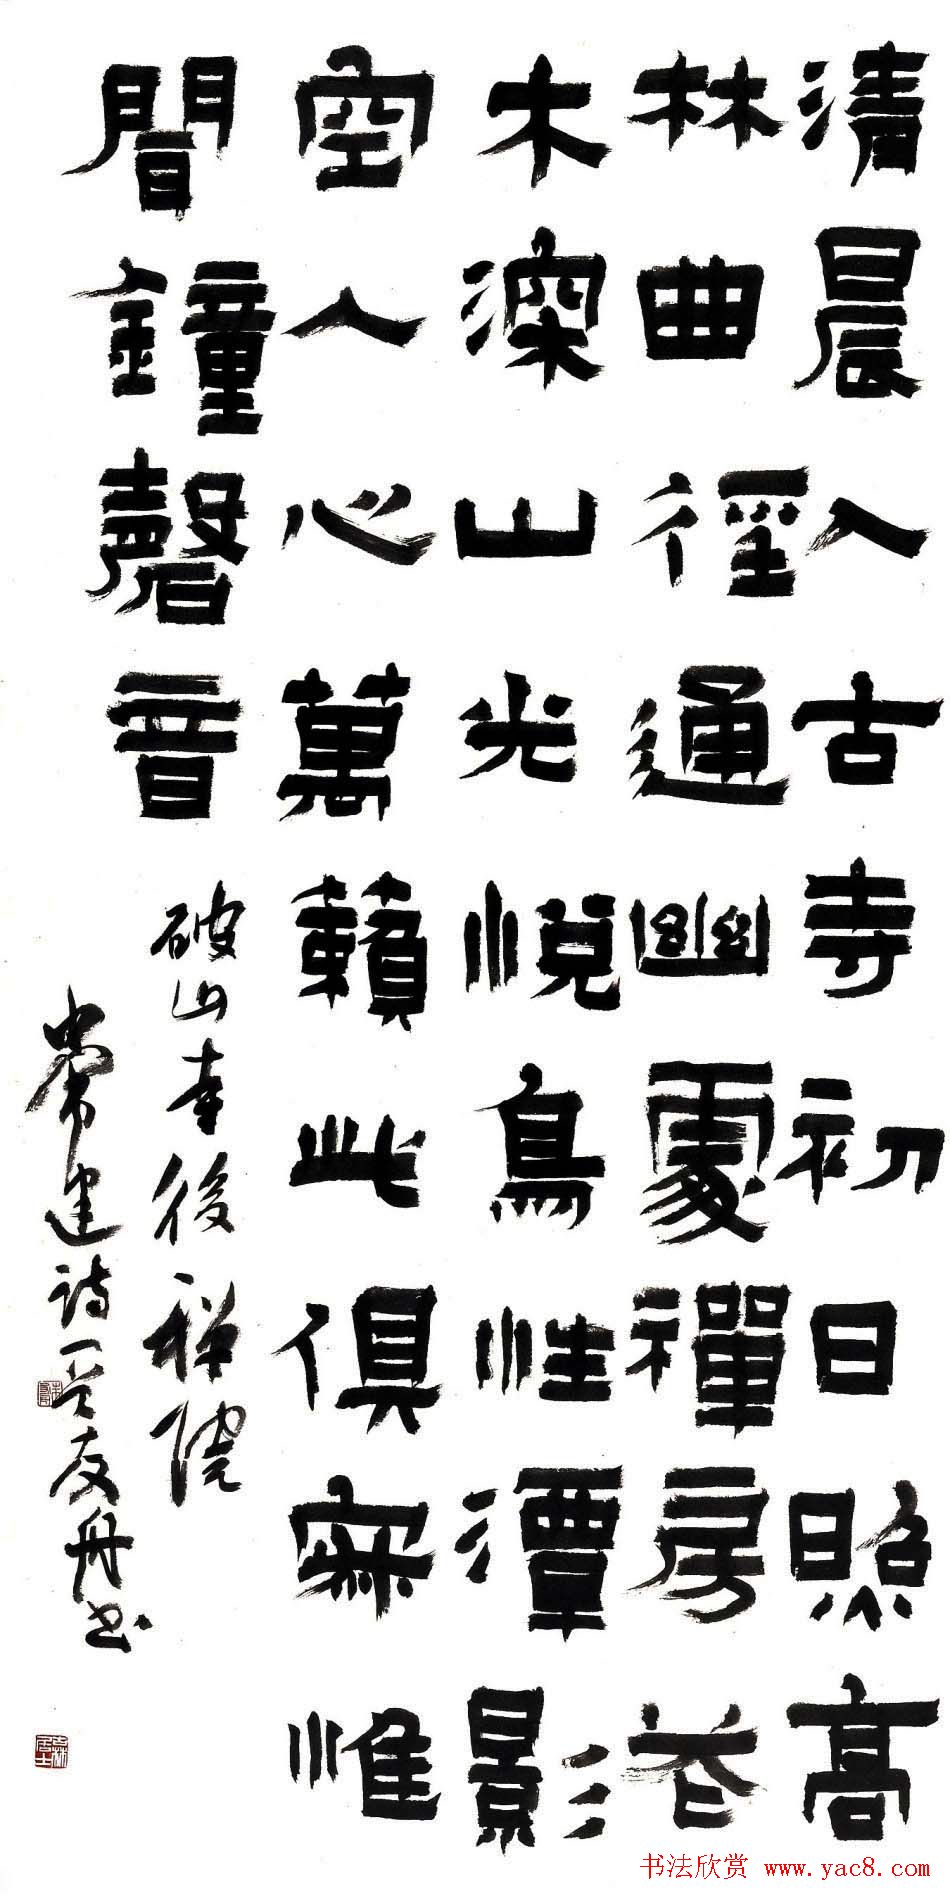 清晨入古寺初日照高
林曲徑通幽處禪房花
木深山光悅鳥性潭影
空人心萬籟此俱寂惟
聞鐘磬音
破山寺後禅院
常建诗一友舟书
书法欣赏 www.yac8.com